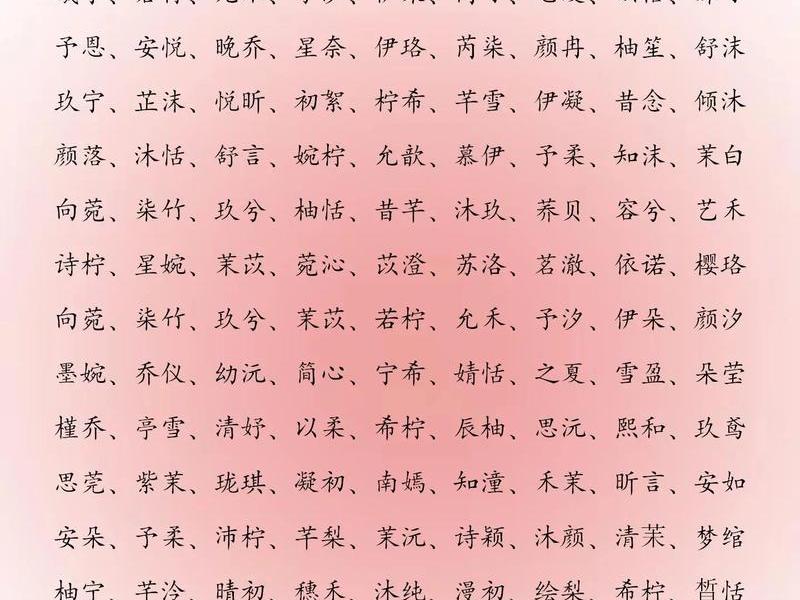 予恩、安悦、晚乔、星奈、伊珞、芮柒、颜冉、柚笙、舒沫
玖宁、芷沫、悦昕、初絮、柠希、芊雪、伊凝、昔念、倾沐
颜落、沐恬、舒言、婉柠、允歆、慕伊、予柔、知沫、茉白
向菀、柒竹、玖兮、柚恬、昔芊、沐玖、荞贝、容兮、艺禾
诗柠、星婉、茉苡、菀沁、苡澄、苏洛、茗澈、依诺、樱珞
向菀、柒竹、玖兮、茉苡、若柠、允禾、予汐、伊朵、颜汐
墨婉、乔仪、幼沅、简心、宁希、婧恬、之夏、雪盈、朵莹
槿乔、亭雪、清妤、以柔、希柠、辰柚、思沅、熙和、玖鸢
思莞、紫茉、珑琪、凝初、南嫣、知潼、禾茉、昕言、安如
安朵、予柔、沛柠、芊梨、茉沅、诗颖、沐颜、清茉、梦绾
柚宁、芊泠、晴初、穗禾、沐纯、漫初、绘梨、希柠、皙恬